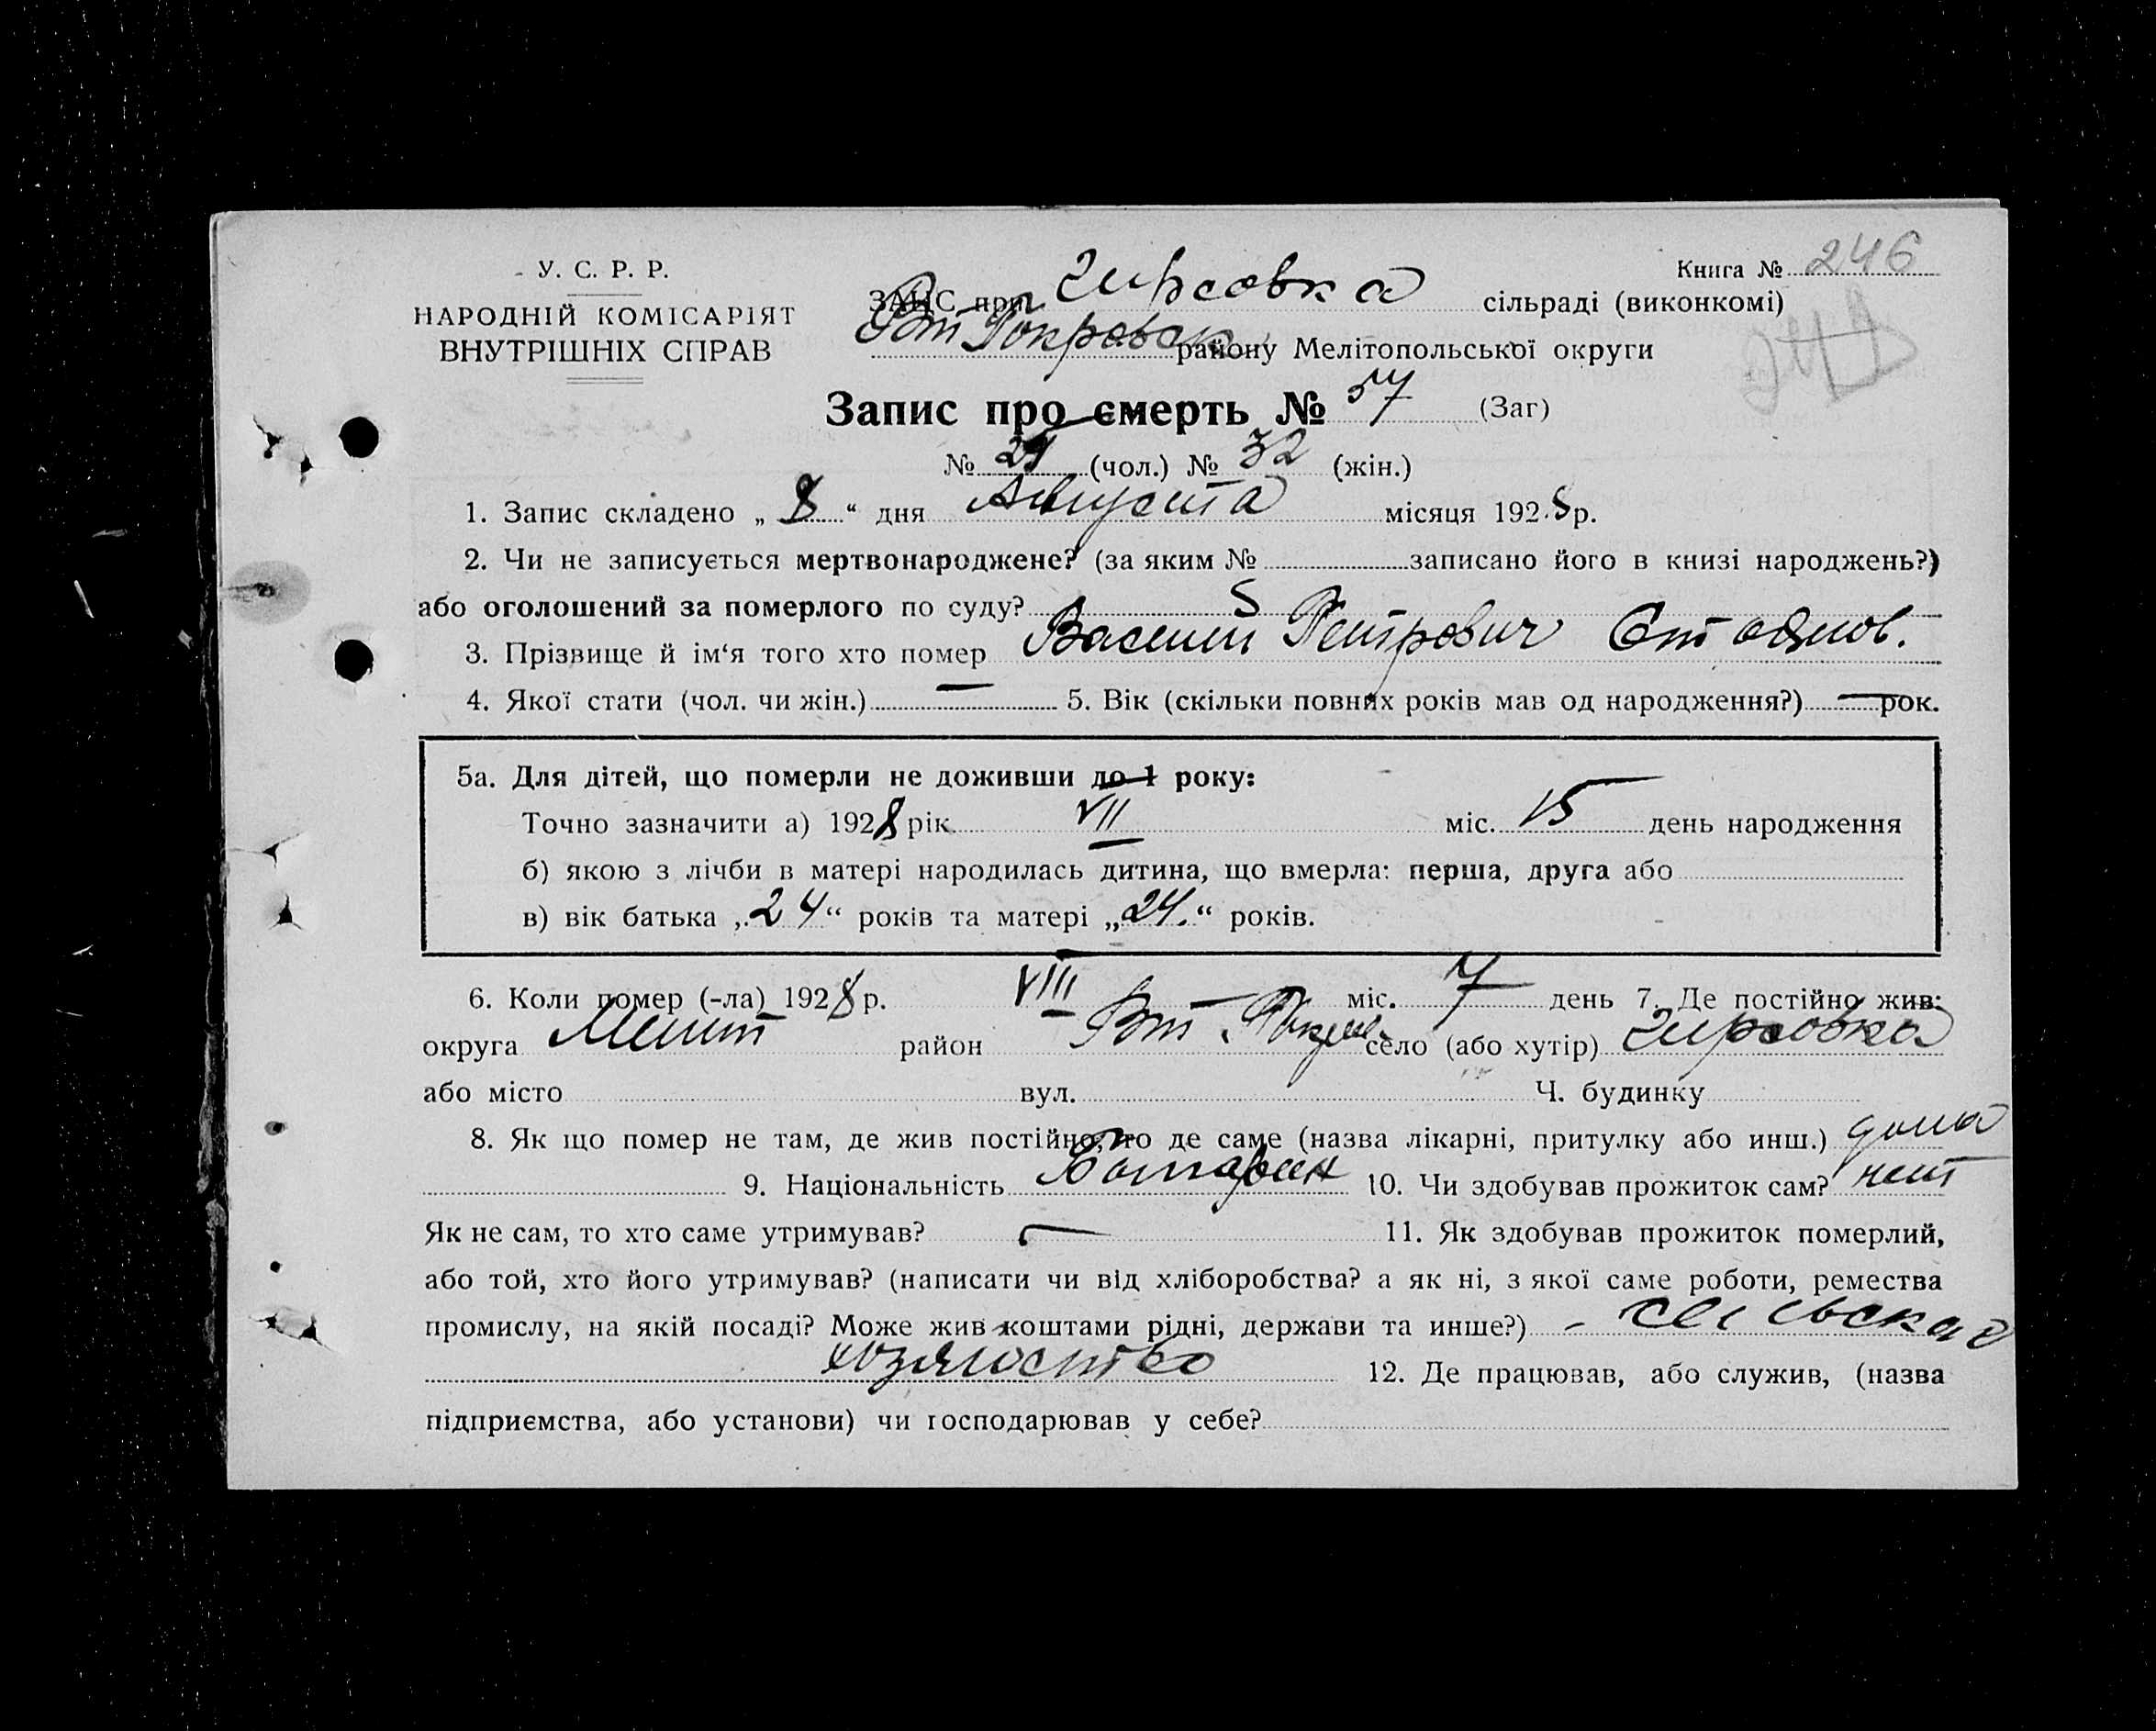 У. С. Р. Р.
НАРОДНІЙ КОМІСАРІЯТ
ВНУТРІШНІХ СПРАВ
Книга № 246
ЗАГС при Гирсовка сільраді (виконкомі)
Вт Покровск району Мелітопольської округи
Запис про смерть № 57 (Заг)
№ 25 (чол.) № 32 (жін.)
1. Запис складено „ 8 “ дня Августа місяця 1928 р.
2. Чи не записується мертвонароджене? (за яким № записано його в книзі народжень?)
або оголошений за померлого по суду?
3. Прізвище й ім‘я того хто помер Василий Петрович
4. Якої стати (чол. чи жін.) — 5. Вік (скільки повних років мав од народження?) — рок.
5а. Для дітей, що померли не доживши до 1 року:
Точно зазначити а) 1928 рік VII міс. 15 день народження
б) якою з лічби в матері народилась дитина, що вмерла: перша, друга або
в) вік батька „24“ років та матері „24.“ років.
6. Коли помер (-ла) 1928 р. VIII міс. 7 день 7. Де постійно жив:
округа Мелит район Вт. село (або хутір) Гирсовка
або місто вул. Ч. будинку
8. Як що помер не там, де жив постійно, то де саме (назва лікарні, притулку або инш.) дома
9. Національність Болгарин 10. Чи здобував прожиток сам? нет
Як не сам, то хто саме утримував? — 11. Як здобував прожиток померлий,
або той, хто його утримував? (написати чи від хліборобства? а як ні, з якої саме роботи, ремества
промислу, на якій посаді? Може жив коштами рідні, держави та инше?) - сельская
хозяйство 12. Де працював, або служив, (назва
підприємства, або установи) чи господарював у себе?